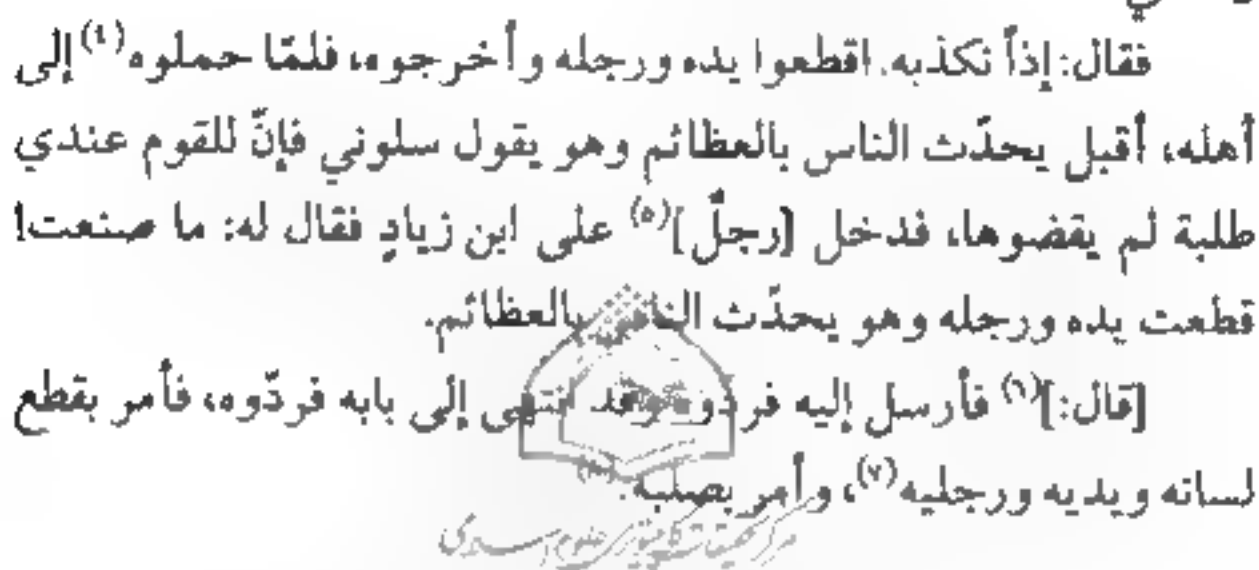 فقال: إذاً نكذبه. اقطعوا يده ورجله وأخرجوه، فلمّا حملوه(٤) إلى
أهله، أقبل يحدّث الناس بالعظائم وهو يقول سلوني فإنّ للقوم عندي
طلبة لم يقضوها، فدخل [رجلٌ](٥) على ابن زيادٍ فقال له: ما صنعت!
قطعت يده ورجله وهو يحدّث الناس بالعظائم.
[قال:](٦) فأرسل إليه فردّوه وقد انتهى إلى بابه فردّوه، فأمر بقطع
لسانه ويديه ورجليه(٧)، وأمر بصلبه.
مركز تحقيقات كامپيوترى علوم اسلامى